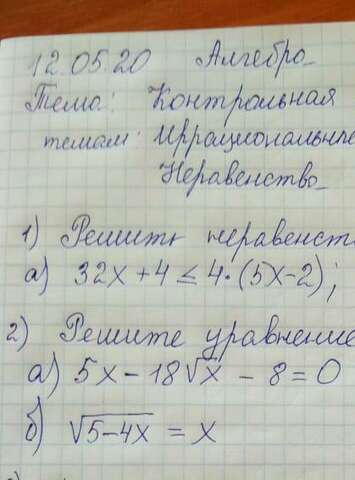 12.05.20 Алгебра
Тема: Контрольная
темам: Иррациональны
Неравенство
1) Решить неравенст
а) 32x + 4 ≤ 4·(5x-2);
2) Решите уравнение
а) 5x - 18√x - 8 = 0
б) √5-4x = x